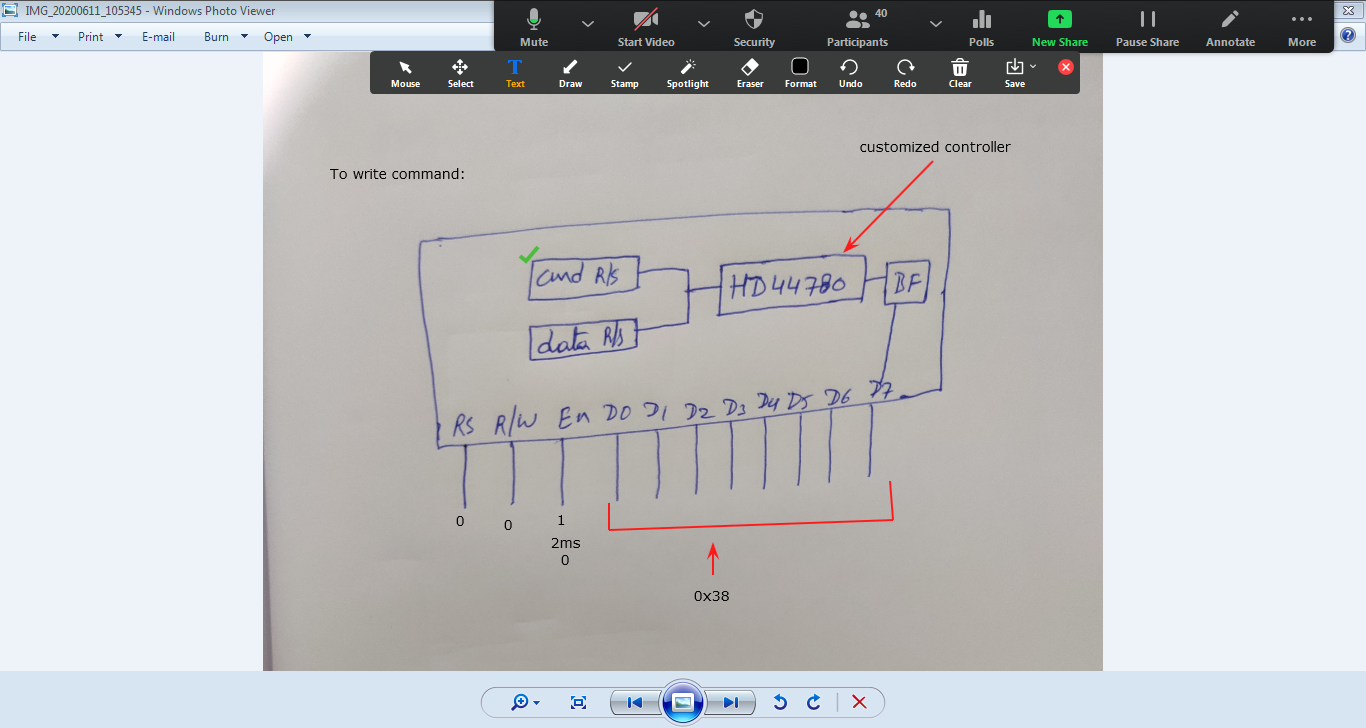 IMG_20200611_105345 - Windows Photo Viewer
File Print E-mail Burn Open
40
Mute Start Video Security Participants Polls New Share Pause Share Annotate More
T
Mouse Select Text Draw Stamp Spotlight Eraser Format Undo Redo Clear Save
customized controller
To write command:
cmd R/s
HD44780
BF
data R/s
RS R/W En D0 D1 D2 D3 D4 D5 D6 D7
0 0 1
2ms
0
0x38